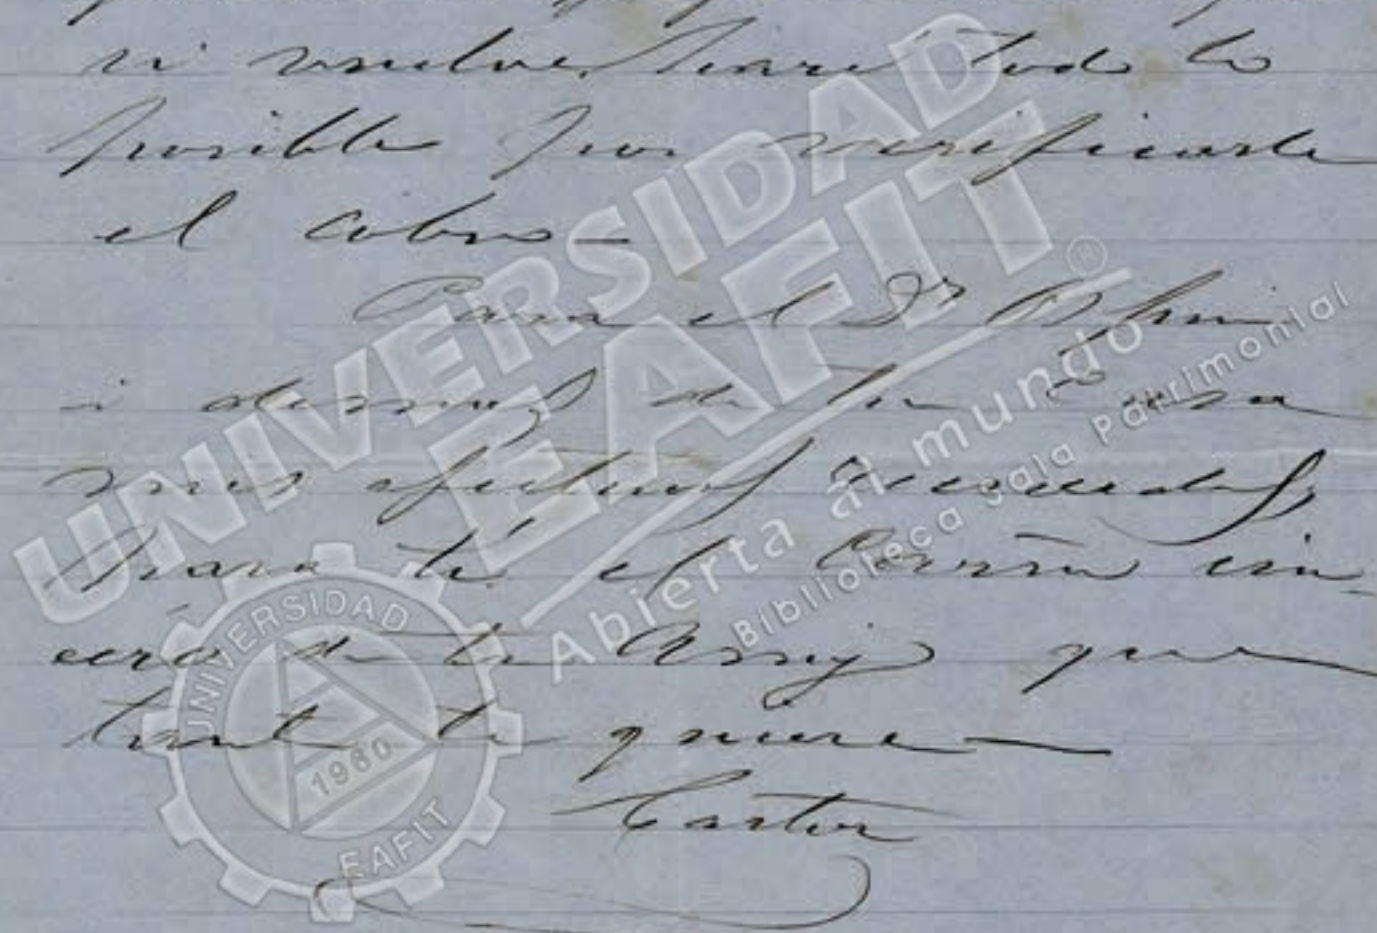 si vuelve, haré todo lo
posible por verificarte
el cobro—
Para el Dr
i demas de tu Casa
mis afectuosos recuerdos,
Para ti el Cariño sin
cero de tu Amigo que
tanto te quiere—
Castor
UNIVERSIDAD
EAFIT®
Abierta al mundo
Biblioteca Sala Patrimonial
UNIVERSIDAD
1960
EAFIT